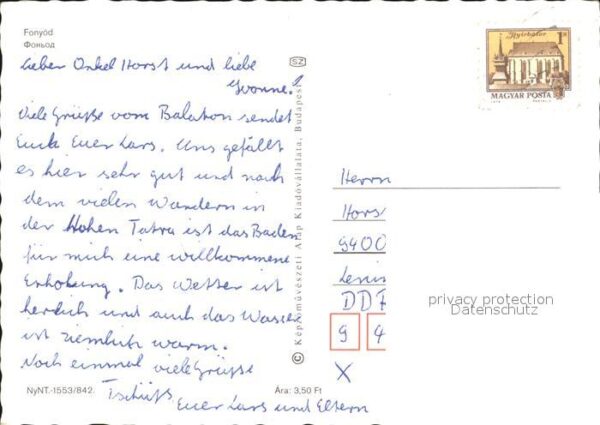 Fonyód
Фоньод
Lieber Onkel Horst und liebe
Yvonne!
Viele Grüße vom Balaton sendet
Euch Euer Lars. Uns gefällt
es hier sehr gut und nach
dem vielen Wandern in
der Hohen Tatra ist das Baden
für mich eine willkommene
Erholung. Das Wetter ist
herrlich und auch das Wasser
ist ziemlich warm.
Noch einmal viele Grüße
Tschüß,
Euer Lars und Eltern
NyNT.-1553/842.
Ára: 3,50 Ft
SZ
© Képzőművészeti Alap Kiadóvállalata, Budapest
Nyírbátor
1 Ft
MAGYAR POSTA
Herrn
Hors
9400
DDR
9 4
X
privacy protection
Datenschutz